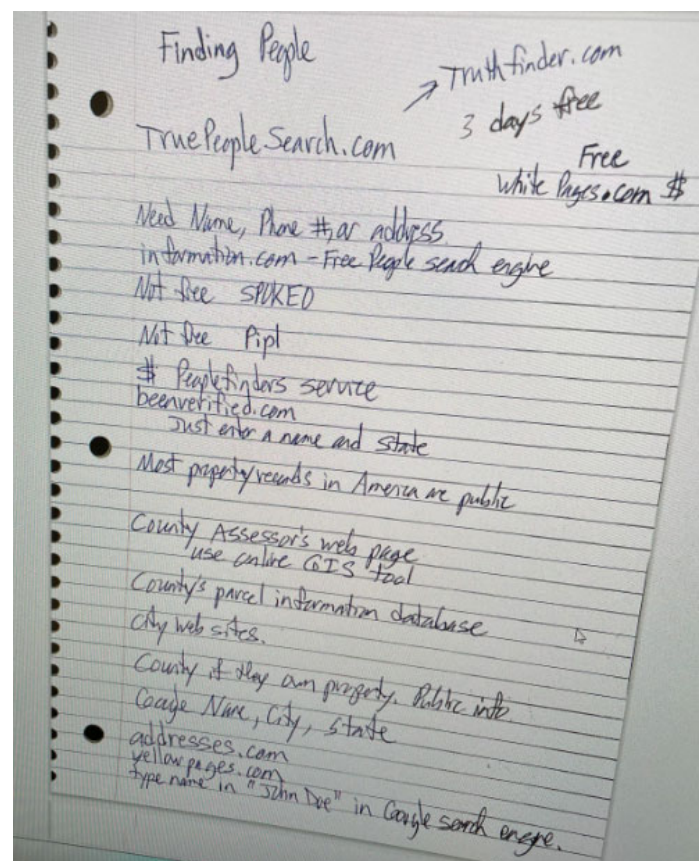 Finding People
→ Truthfinder.com
3 days free
TruePeopleSearch.com
Free
White Pages.com $
Need Name, Phone #, or address
information.com - Free People search engine
Not free SPOKEO
Not free Pipl
$ Peoplefinders service
beenverified.com
Just enter a name and state
Most property records in America are public
County Assessor's web page
use online GIS tool
County's parcel information database
City web sites.
County if they own property. Public info
Google Name, City, State
addresses.com
yellowpages.com
type name in "John Doe" in Google search engine.